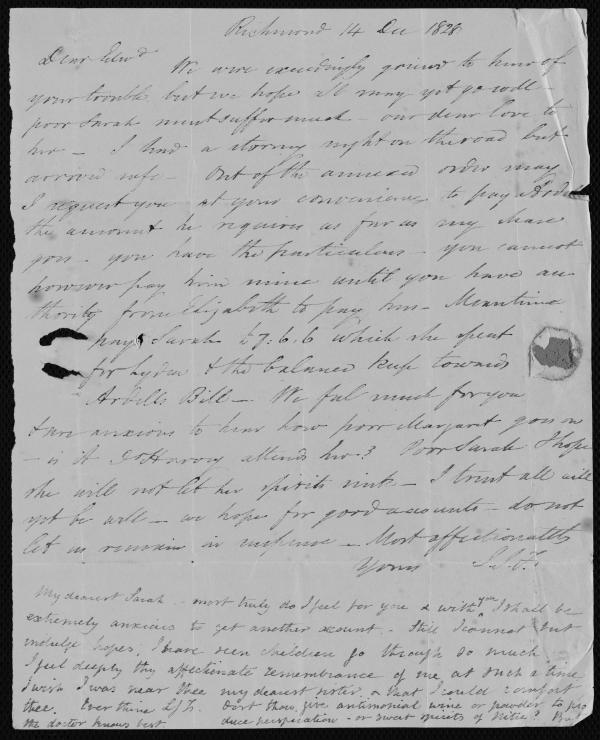 Richmond 14 Dec 1828
Dear Edwd We were exceedingly grieved to hear of
your trouble but we hope all may yet go well -
poor Sarah must suffer much - our dear love to
her - I had a stormy night on the road but
arrived safe - Out of the annexed order may
I request you at your convenience to pay
the amount he requires as far as my share
goes - you have the particulars - you cannot
however pay him mine until you have au
thority from Elizabeth to pay hers - Meantime
pay Sarah £7:6.6 which she spent
for Lydia & the balance keep towards
Arbells Bill - We feel much for you
& are anxious to hear how poor Margaret goes on
- is it Dr Harvey attends her? Poor Sarah I hope
she will not let her spirits sink - I trust all will
yet be well - we hope for good accounts - do not
let us remain in suspense - Most affectionately
Yours
My dearest Sarah - most truly do I feel for you & with you I shall be
extremely anxious to get another account - Still I cannot but
indulge hopes, I have seen children go through so much.
I feel deeply thy affectionate remembrance of me at such a time
I wish I was near thee my dearest sister, & that I could comfort
thee. Ever thine Dost thou give antimonial wine or powder to pro
duce perspiration - or sweet spirits of nitre? But
the doctor knows best